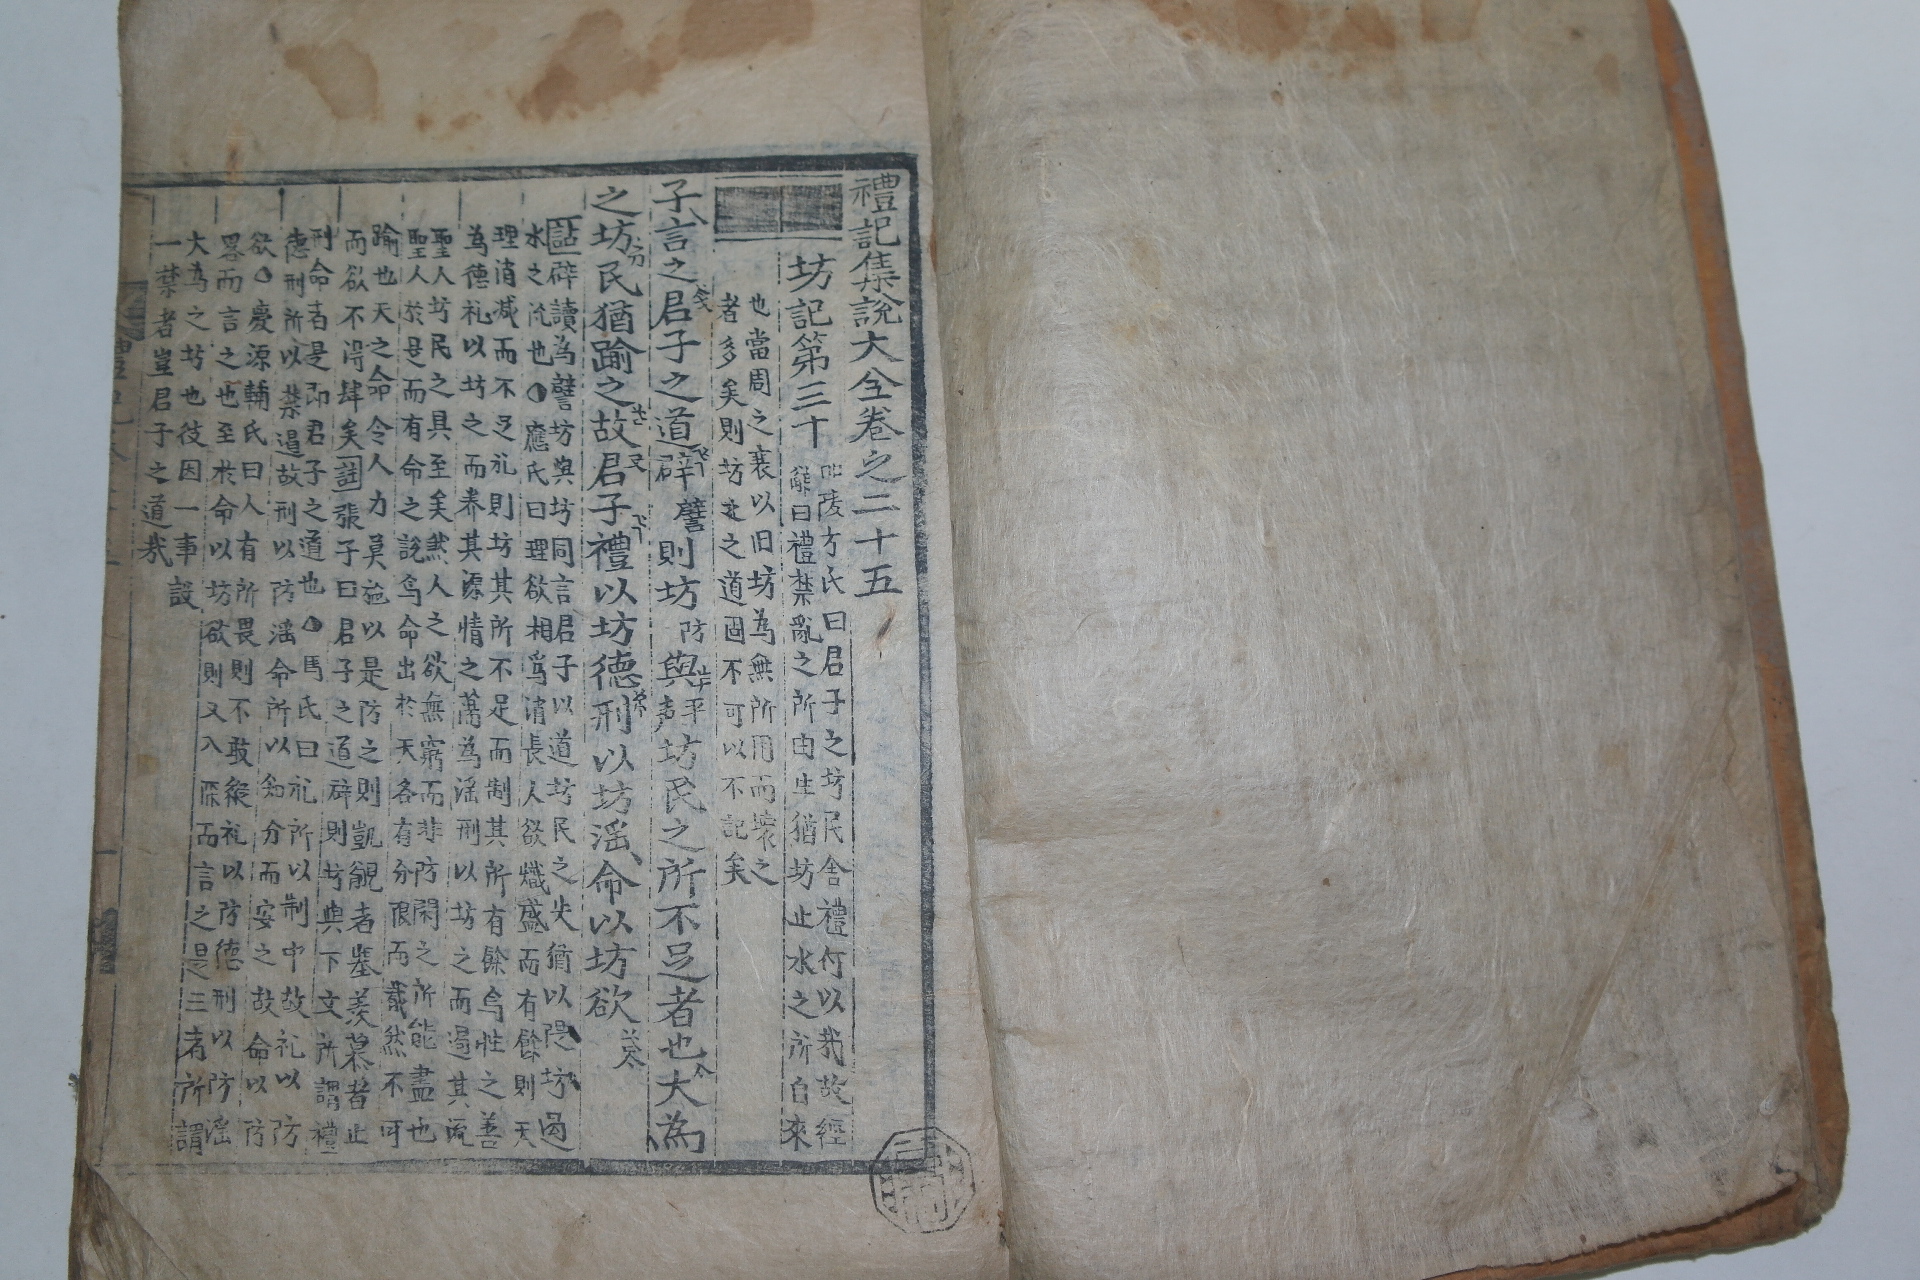 禮記集說大全卷之二十五
坊記第三十
陵方氏曰君子之坊民舍禮何以哉故經
觧曰禮禁亂之所由生猶坊止水之所自來
也當周之衰以旧坊為無所用而壞之
者多矣則坊民之道固不可以不記矣
子言之君子之道辟譬則坊防與平声坊民之所不足者也大為
之坊民猶踰之故君子禮以坊德刑以坊淫命以坊欲
註辟讀為譬坊與坊同言君子以道坊民之失猶以隄坊遏
水之流也○應氏曰理欲相為消長人欲熾盛而有餘則天
理消减而不足礼則坊其所不足而制其所有餘焉性之善
為德礼以坊之而养其源情之蕩為淫刑以坊之而遏其流
聖人坊民之具至矣然人之欲無窮而非防閑之所能盡也
聖人於是而有命之說焉命出於天各有分限而截然不可
踰也天之命令人力莫施以是防之則凱覦者塞羡慕者止
而欲不淂肆矣註張子曰君子之道辟則坊與下文所謂禮
刑命者是即君子之道也○馬氏曰礼所以制中故礼以防
德刑所以禁過故刑以防淫命所以知分而安之故命以防
欲○慶源輔氏曰人有所畏則不敢縱礼以防德刑以防淫
畧而言之也至於命以坊欲則又入深而言之是三者所謂
大為之坊也彼因一事設
一禁者豈君子之道哉